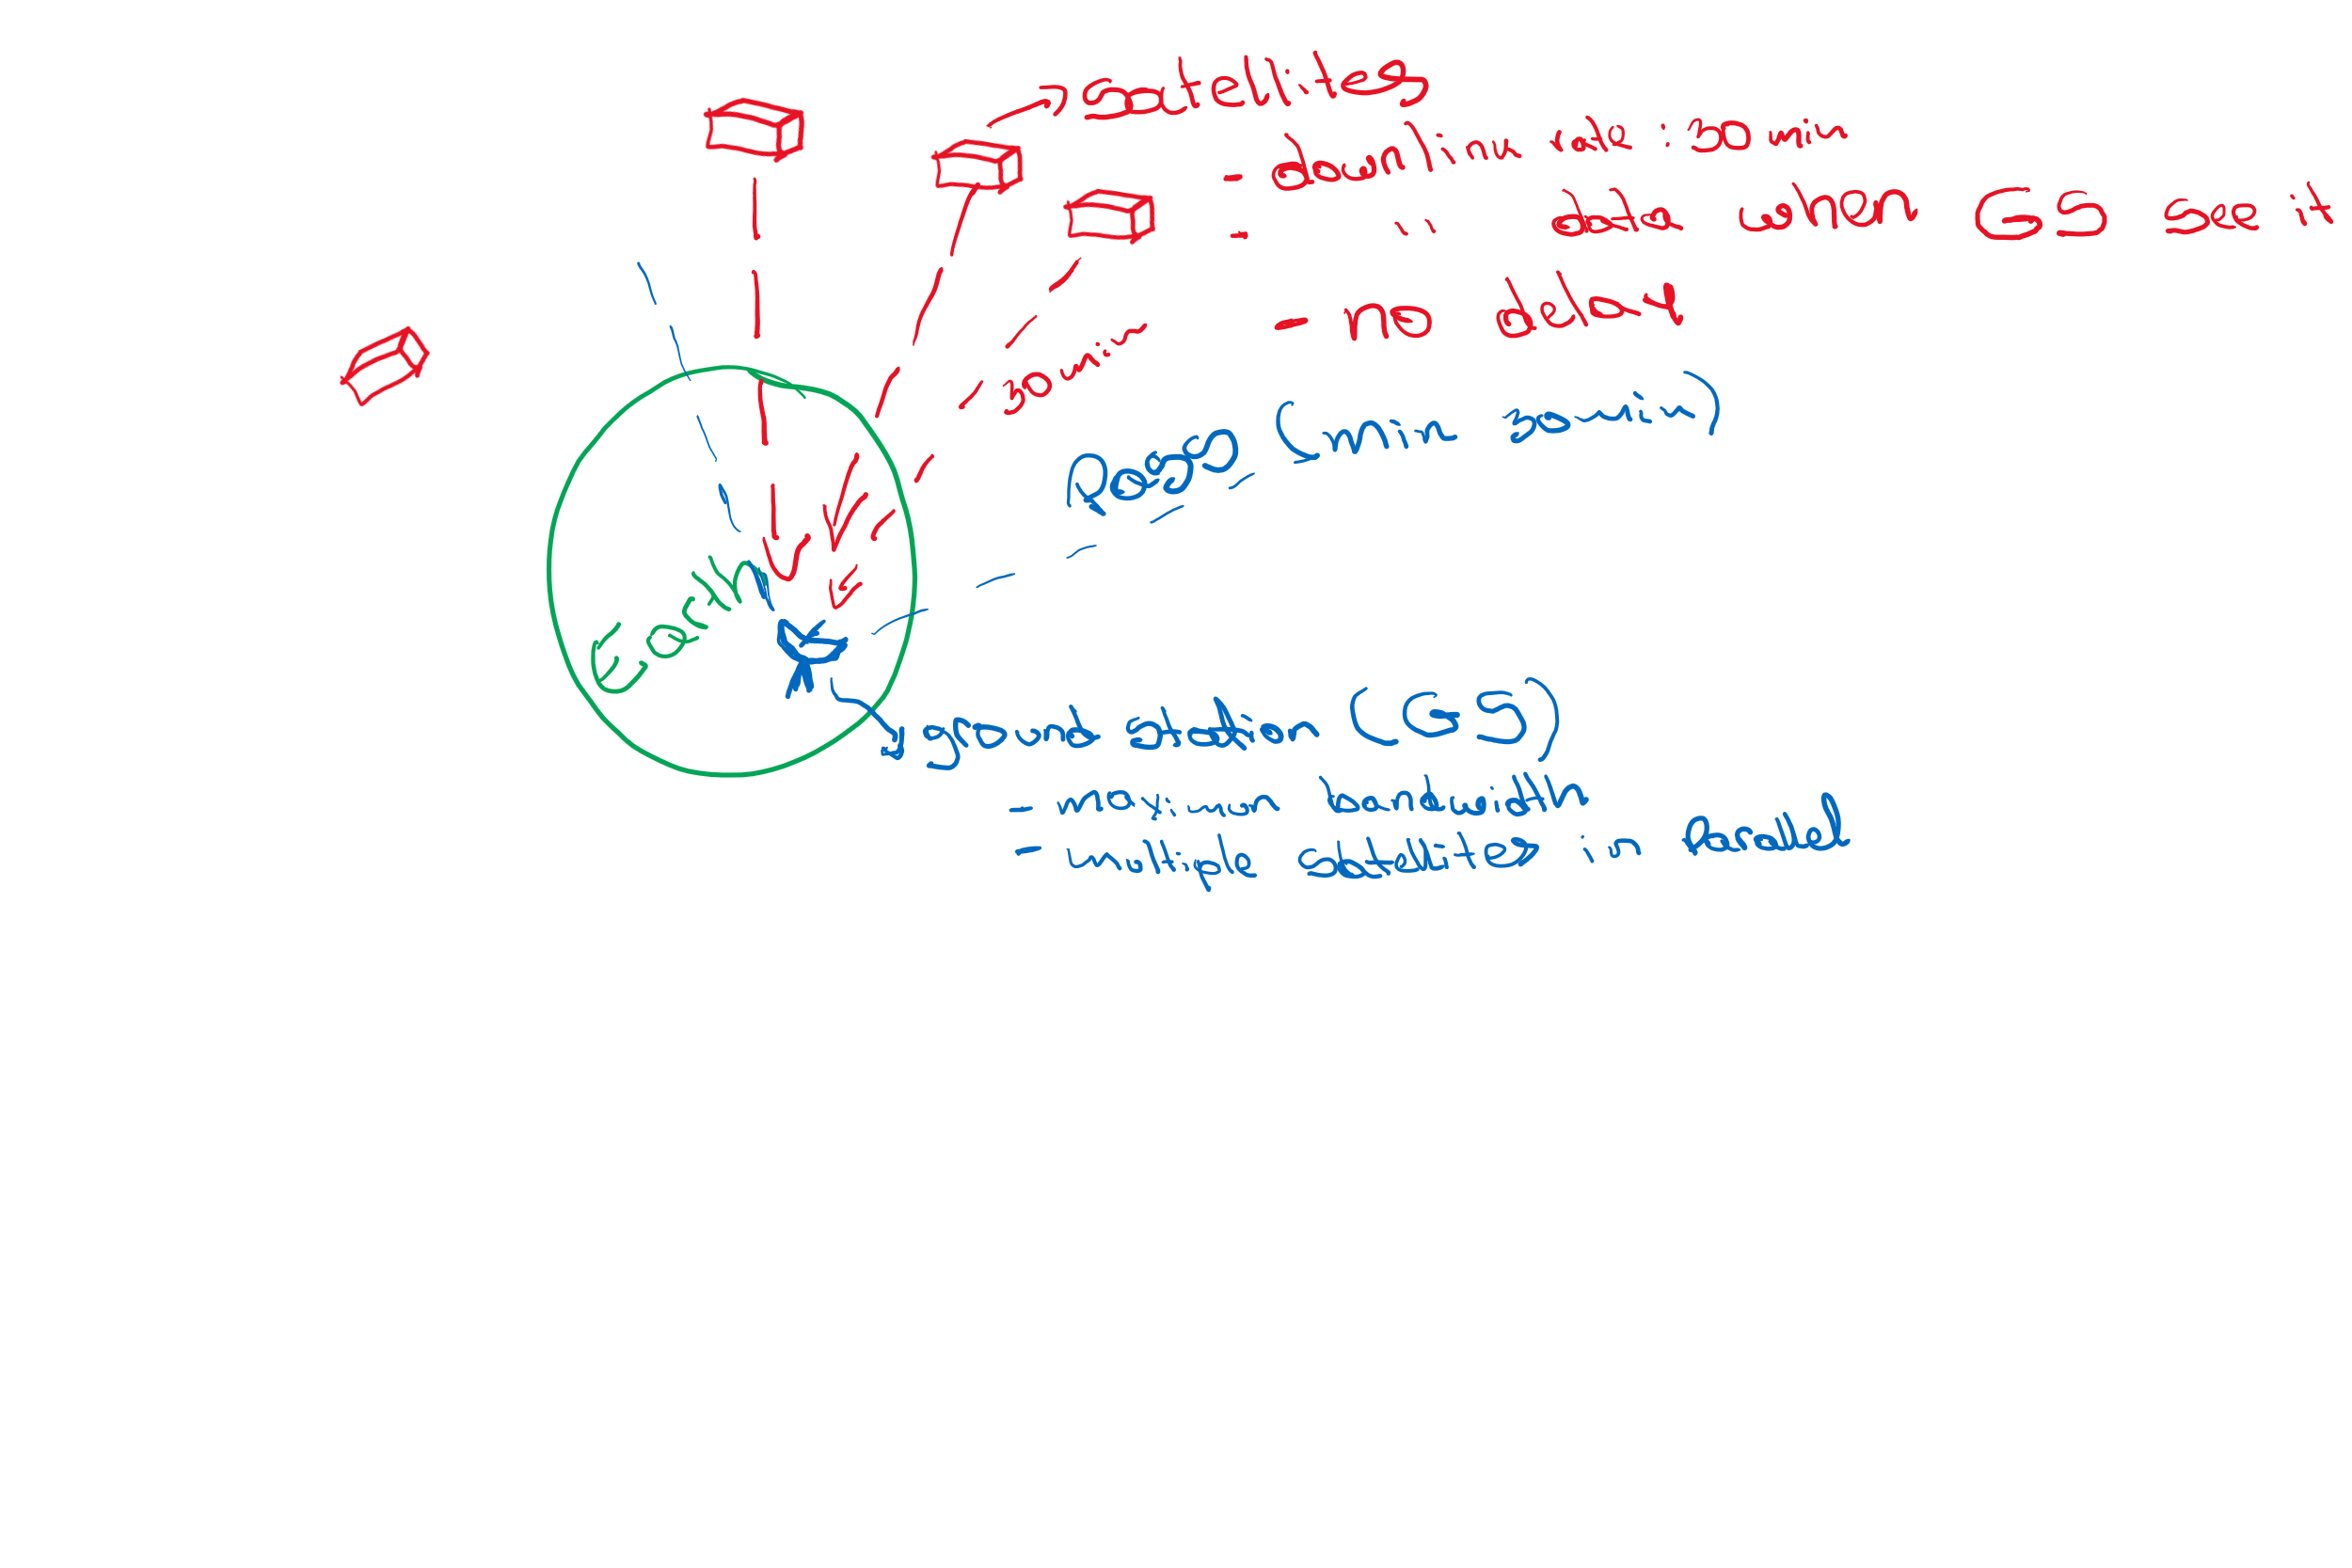 satellites
- downlink rate: 30 min
- " data when GS see it
- no delay
30 min
Pass (min 30 min)
Earth
ground station (GS)
- maximum bandwidth
- multiple satellites in parallel